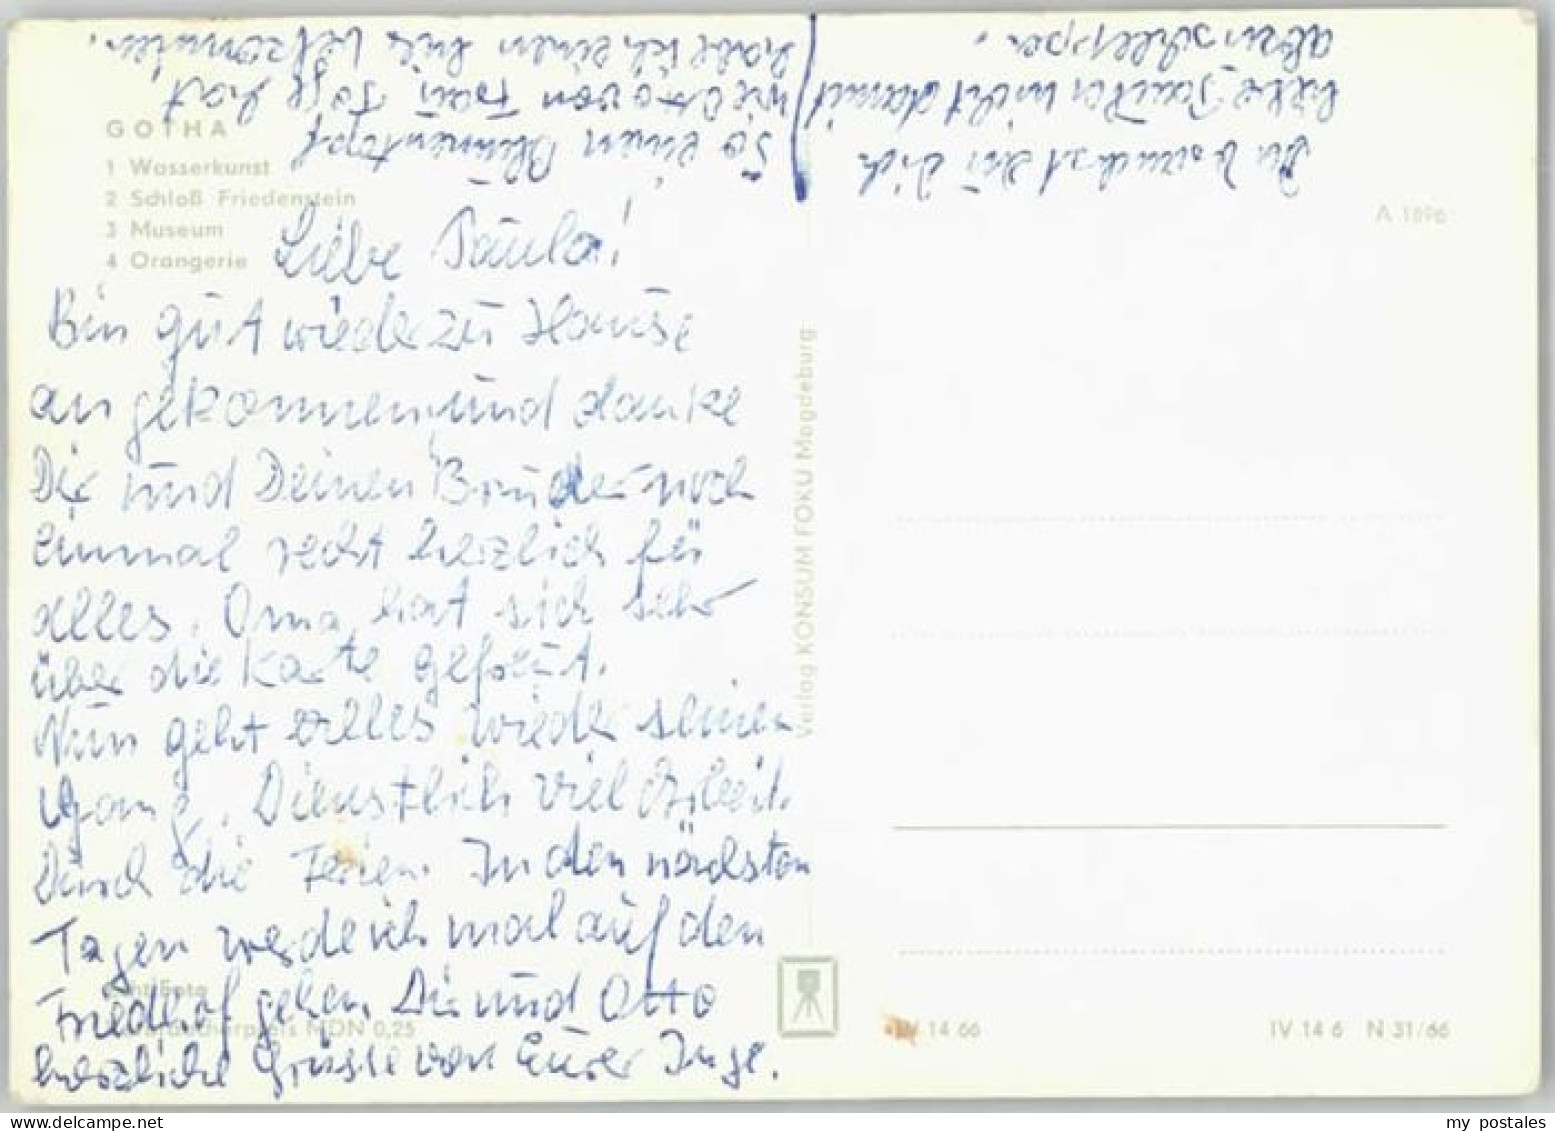 GOTHA
1 Wasserkunst
2 Schloß Friedenstein
3 Museum
4 Orangerie
A 1896
Liebe Paula!
Bin gut wieder zu Hause
angekommen und danke
Dir und Deinen Bruder noch
einmal recht herzlich für
alles. Oma hat sich sehr
über die Karte gefreut.
Nun geht alles wieder seinen
Gang. Dienstlich viel Arbeit.
Durch die Ferien. In den nächsten
Tagen werde ich mal auf den
Friedhof gehen. Dir und Otto
herzliche Grüsse von Eurer Inge.
So einen Blumentopf
wie Otto von Frau hat
habe ich einen hier bekommen.
Du brauchst Dir Dich
liebe Paula nicht damit
abzuschleppen.
Verlag KONSUM FOKU Magdeburg
MDN 0,25
IV 14 66
IV 14 6 N 31/66
my postales